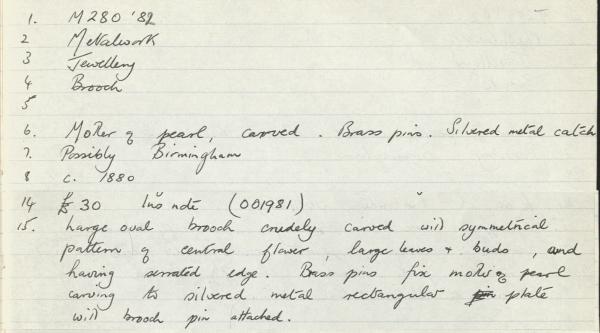 1. M280 '82
2 Metalwork
3 Jewellery
4 Brooch
5
6. Mother of pearl, carved. Brass pins. Silvered metal catch
7. Possibly Birmingham
8 c. 1880
14 £30 note (001981)
15. Large oval brooch crudely carved with symmetrical
pattern of central flower, large leaves + buds, and
having serrated edge. Brass pins fix mother of pearl
carving to silvered metal rectangular plate
with brooch pin attached.